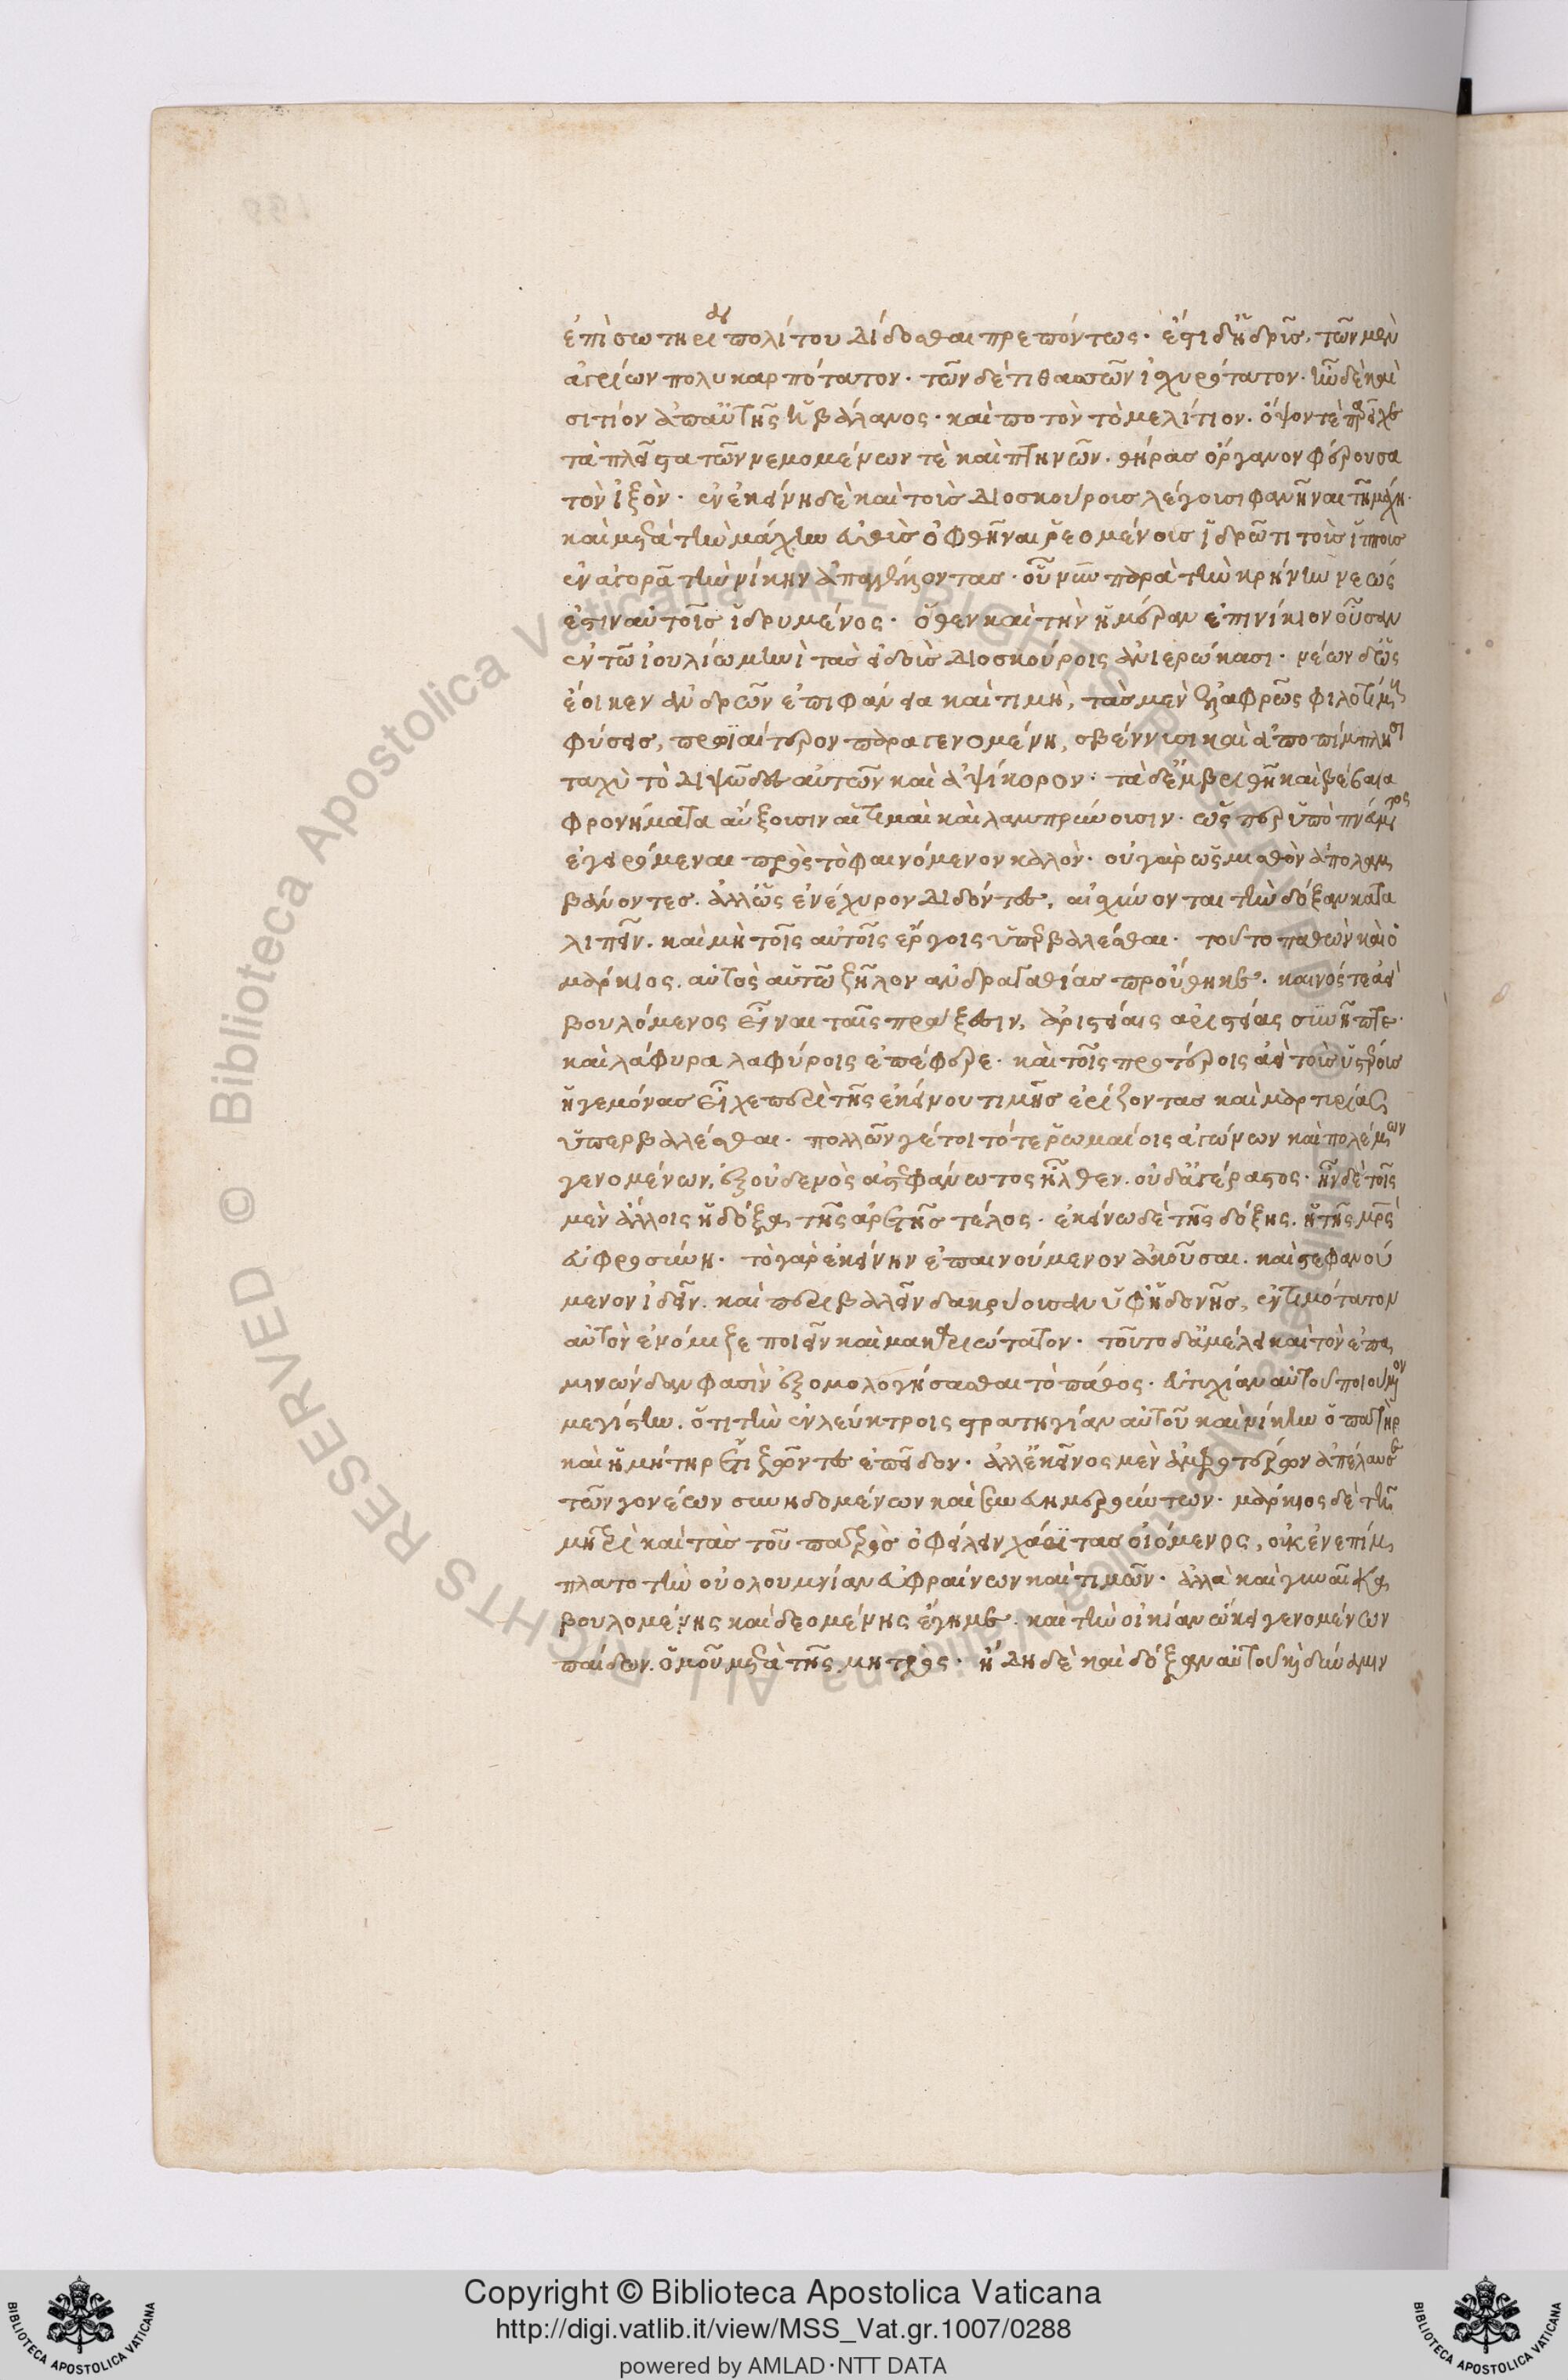 ἐπὶ σωτηρίᾳ πολίτου δίδοσθαι πρεπόντως· ἔστι δὴ δρῦς, τῶν μὲν
ἀγρίων πολυκαρπότατον· τῶν δὲ τιθασσῶν ἰσχυρότατον· ἦν δὲ καὶ
σιτίον ἀπ' αὐτῆς ἡ βάλανος· καὶ ποτὸν τὸ μελίτιον. ὄψον τὲ παρεῖχε
τὰ πλεῖστα τῶν νεμομένων τὲ καὶ πτηνῶν. θήρας ὄργανον φέρουσα
τὸν ἰξὸν· ἐν ἐκείνῃ δὲ καὶ τοὺς Διοσκούρους λέγουσι φανῆναι τῆ μάχῃ.
καὶ μετὰ τὴν μάχην εὐθὺς ὀφθῆναι ῥεομένοις ἱδρῶτι τοῖς ἵπποις
ἐν ἀγορᾷ τὴν νίκην ἀπαγγέλλοντας· οὗ νῦν παρὰ τὴν κρήνην νεώς
ἐστιν αὐτοῖς ἱδρυμένος· ὅθεν καὶ τὴν ἡμέραν ἐπινίκιον οὖσαν
ἐν τῷ ἰουλίῳ μηνὶ τὰς εἰδοὺς Διοσκούροις ἀνιερώκασι· νέων δ' ὡς
ἔοικεν ἀνδρῶν ἐπιφάνεια καὶ τιμὴ, τὰς μὲν ἐλαφρῶς φιλοτίμους
φύσεις, πρωϊαίτερον παραγενομένη, σβέννυσι καὶ ἀποπίμπλησι
ταχὺ τὸ διψῶδες αὐτῶν καὶ ἀψίκορον· τὰ δ' ἐμβριθῆ καὶ βέβαια
φρονήματα αὔξουσιν αἱ τιμαὶ καὶ λαμπρύνουσιν· ὥσπερ ὑπὸ πνεύματος
ἐγειρόμεναι πρὸς τὸ φαινόμενον καλὸν· οὐ γὰρ ὡς μισθὸν ἀπολαμ
βάνοντες. ἀλλ' ὡς ἐνέχυρον διδόντες, αἰσχύνονται τὴν δόξαν κατα
λιπεῖν. καὶ μὴ τοῖς αὐτοῖς ἔργοις ὑπερβαλέσθαι· τοῦτο παθὼν καὶ ὁ
μάρκιος. αὐτὸς αὑτῷ ζῆλον ἀνδραγαθίας προὔθηκε· καινός τε ἀεὶ
βουλόμενος εἶναι ταῖς πράξεσιν, ἀριστείαις ἀριστείας συνῆπτε·
καὶ λάφυρα λαφύροις ἐπέφερε· καὶ τοῖς προτέροις ἀεὶ τοὺς ὑστέρους
ἡγεμόνας εἶχε περὶ τῆς ἐκείνου τιμῆς ἐρίζοντας καὶ μαρτυρίας
ὑπερβαλέσθαι· πολλῶν γέ τοι τότε ῥωμαίοις ἀγώνων καὶ πολέμων
γενομένων, ἐξ οὐδενὸς ἀστεφάνωτος ἦλθεν. οὐδ' ἀγέραστος· ἦν δὲ τοῖς
μὲν ἄλλοις ἡ δόξα τῆς ἀρετῆς τέλος· ἐκείνῳ δὲ τῆς δόξης. ἡ τῆς μρς
εὐφροσύνη· τὸ γὰρ ἐκείνην ἐπαινούμενον ἀκοῦσαι. καὶ στεφανού
μενον ἰδεῖν. καὶ περιβαλεῖν δακρύουσαν ὑφ' ἡδονῆς, ἐντιμότατον
αὐτὸν ἐνόμιζε ποιεῖν καὶ μακαριώτατον· τοῦτο δ' ἀμέλει καὶ τὸν ἐπα
μινώνδαν φασὶν ἐξομολογήσασθαι τὸ πάθος· εὐτυχίαν αὐτοῦ ποιούμενον
μεγίστην. ὅτι τὴν ἐν λεύκτροις στρατηγίαν αὐτοῦ καὶ νίκην ὁ πατὴρ
καὶ ἡ μήτηρ ἔτι ζῶντες ἐπεῖδον· ἀλλ' ἐκεῖνος μὲν ἀμφοτέρων ἀπέλαυσε
τῶν γονέων συνηδομένων καὶ συνευημερούντων· μάρκιος δὲ τῇ
μητρὶ καὶ τὰς τοῦ πατρὸς ὀφείλειν χάριτας οἰόμενος, οὐκ ἐνεπίμ
πλατο τὴν οὐολουμνίαν εὐφραίνων καὶ τιμῶν· ἀλλὰ καὶ γυναῖκα
βουλομένης καὶ δεομένης ἔγημε. καὶ τὴν οἰκίαν ᾤκει γενομένων
παίδων. ὁμοῦ μετὰ τῆς μητρὸς· ἤδη δὲ καὶ δόξαν αὐτοῦ καὶ δύναμιν
Copyright © Biblioteca Apostolica Vaticana
http://digi.vatlib.it/view/MSS_Vat.gr.1007/0288
powered by AMLAD·NTT DATA